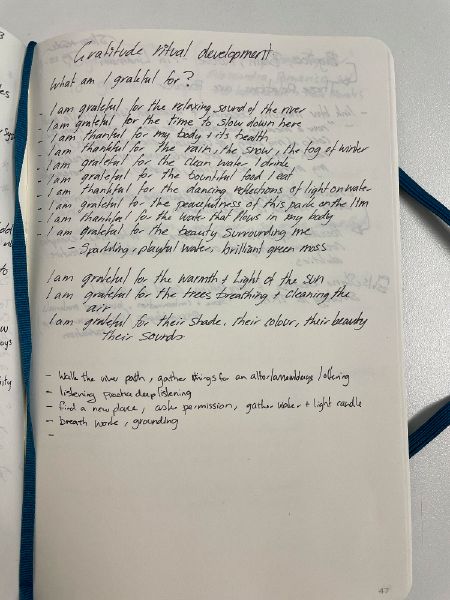 Gratitude ritual development
What am I grateful for?
- I am grateful for the relaxing sound of the river
- I am grateful for the time to slow down here
- I am thankful for my body + its health
- I am thankful for the rain, the snow, the fog of winter
- I am grateful for the clean water I drink
- I am grateful for the bountiful food I eat
- I am thankful for the dancing reflections of light on water
- I am grateful for the peacefulness of this park on the
- I am thankful for the water that flows in my body
- I am grateful for the beauty surrounding me
- Sparkling, playful water, brilliant green moss
I am grateful for the warmth + light of the sun
I am grateful for the trees breathing + cleaning the
air
I am grateful for their shade, their colour, their beauty
their sounds
- Walk the river path, gather things for an altar / offering
- listening, deep listening
- find a new place, ask permission, gather water + light candle
- breath work, grounding
-
47